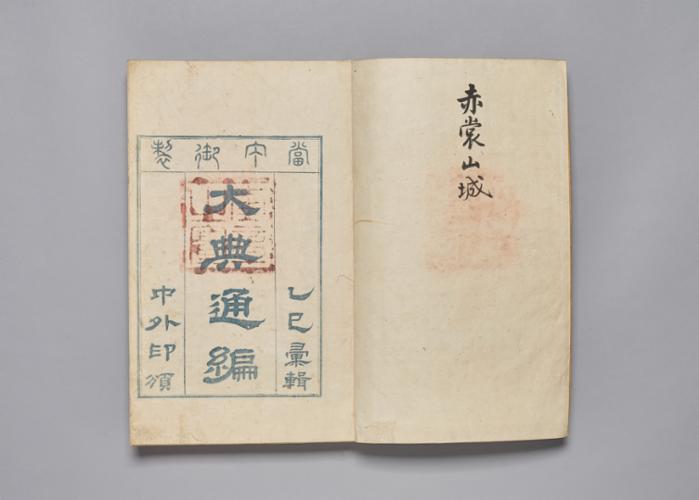 赤裳山城
當宁御製
乙巳彙輯
大典通編
中外印頒